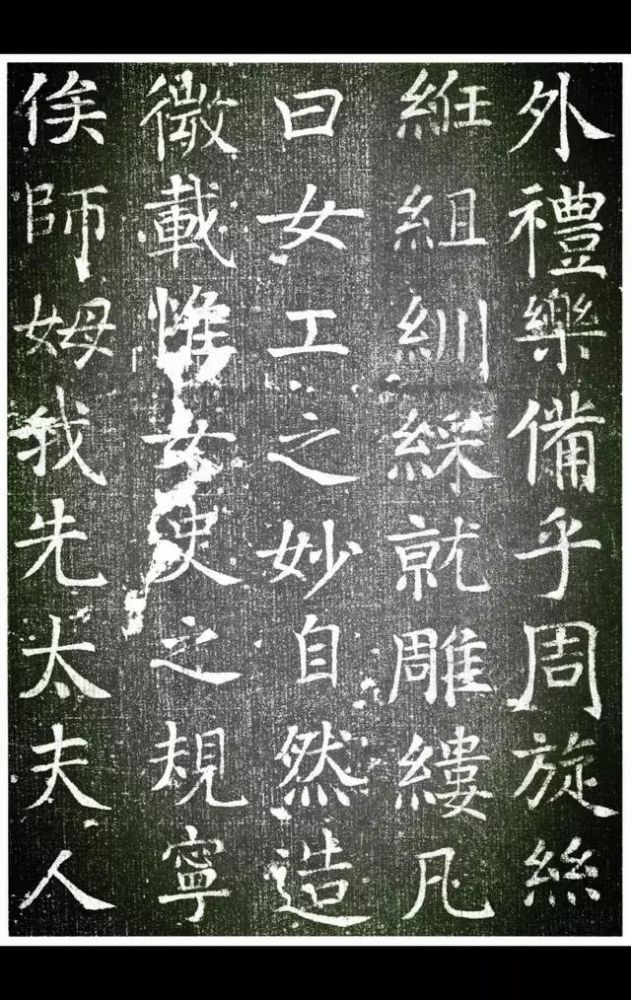 外禮樂備乎周旋絲
維組紃綵就雕縷凡
曰女工之妙自然造
微載惟女史之規寧
俟師姆我先太夫人